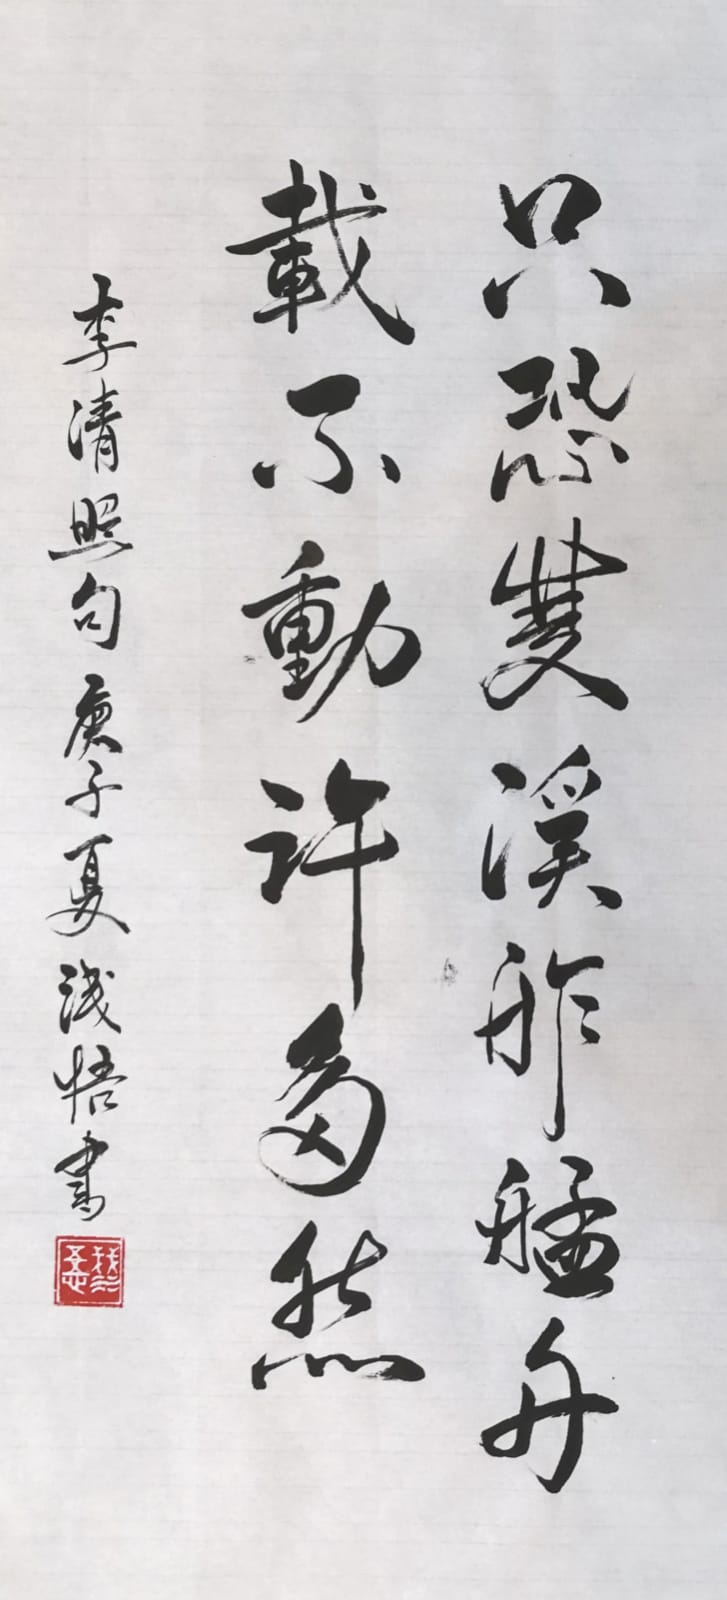 只恐雙溪舴艋舟
載不動許多愁
李清照句庚子夏淺悟書
淺悟